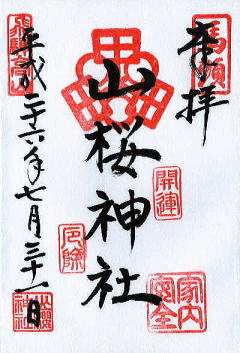 馬頭
奉拝
山桜神社
開運
厄除
家内安全
飛騨高山
平成二十六年七月三十一日